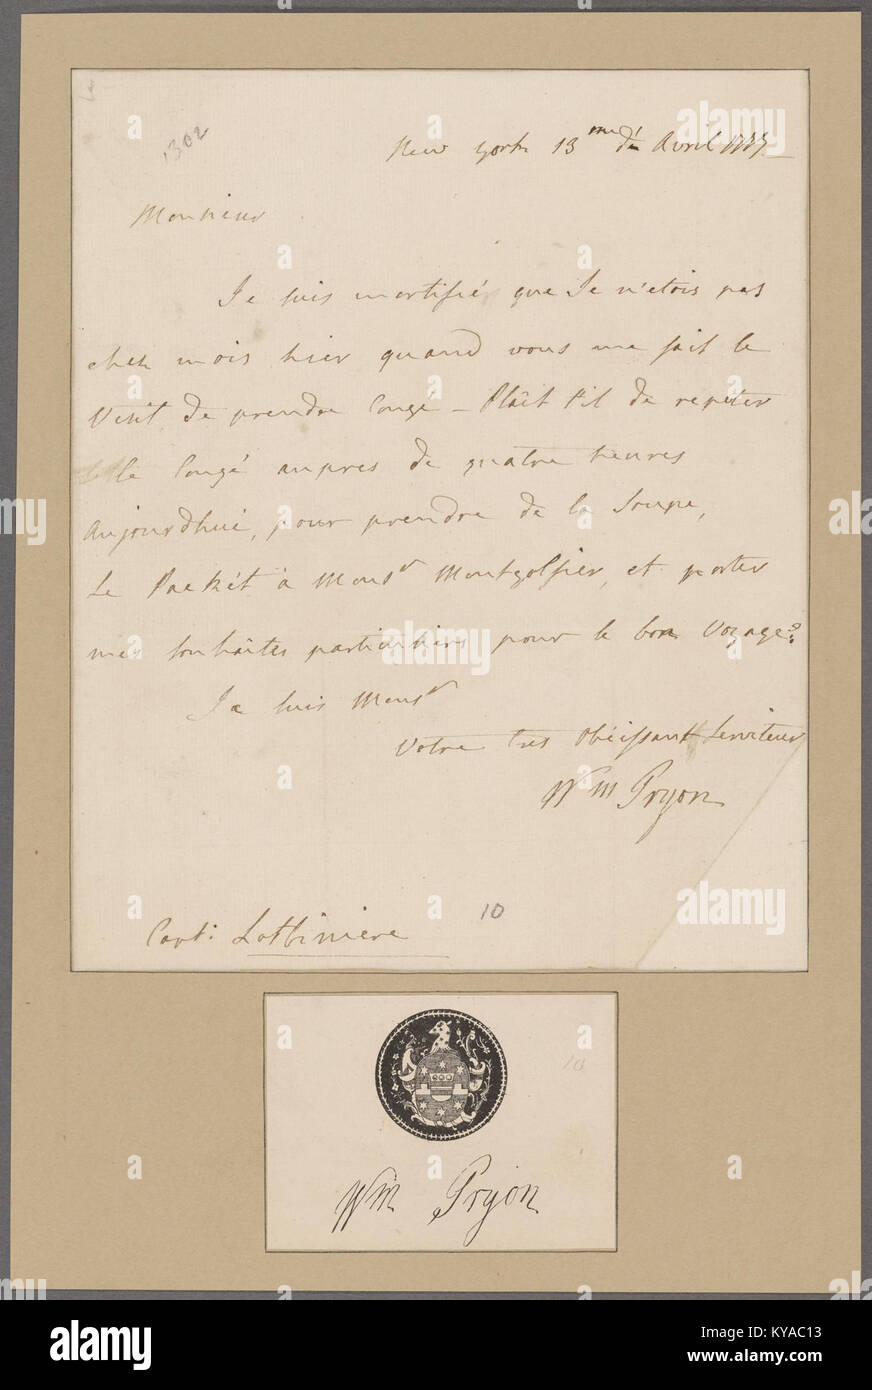 1302
New York 13 me de Avril 1777
Monsieur
Je suis mortifié que Je n'etois pas
chez mois hier quand vous me fait le
Visit de prendre Congé — Plâit t'il de repeter
le Congé aupres de quatre heures
Aujourdhui, pour prendre de la Soupe,
Le Packét à Monsr Montgolfier, et porter
mes souhâites particuliers pour le bon Voyage?
Je suis Monsr
Votre tres Obéissant Serviteur
Wm Pryon
10
Capt: Lotbiniere
10
Wm Pryon
a
alamy
alamy
KYAC13
www.alamy.com